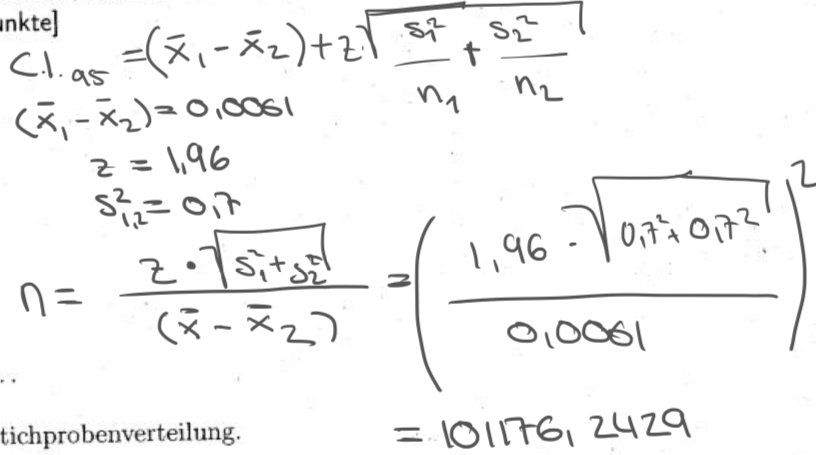 nkte]
C.I. 95 = (x̄₁ - x̄₂) + z √(s₁²/n₁ + s₂²/n₂)
(x̄₁ - x̄₂) = 0,0061
z = 1,96
s²₁,₂ = 0,7
n = z · √(s₁² + s₂²) / (x̄ - x̄₂) = (1,96 · √(0,7² + 0,7²) / 0,0061)²
..
tichprobenverteilung.
= 101176, 2429